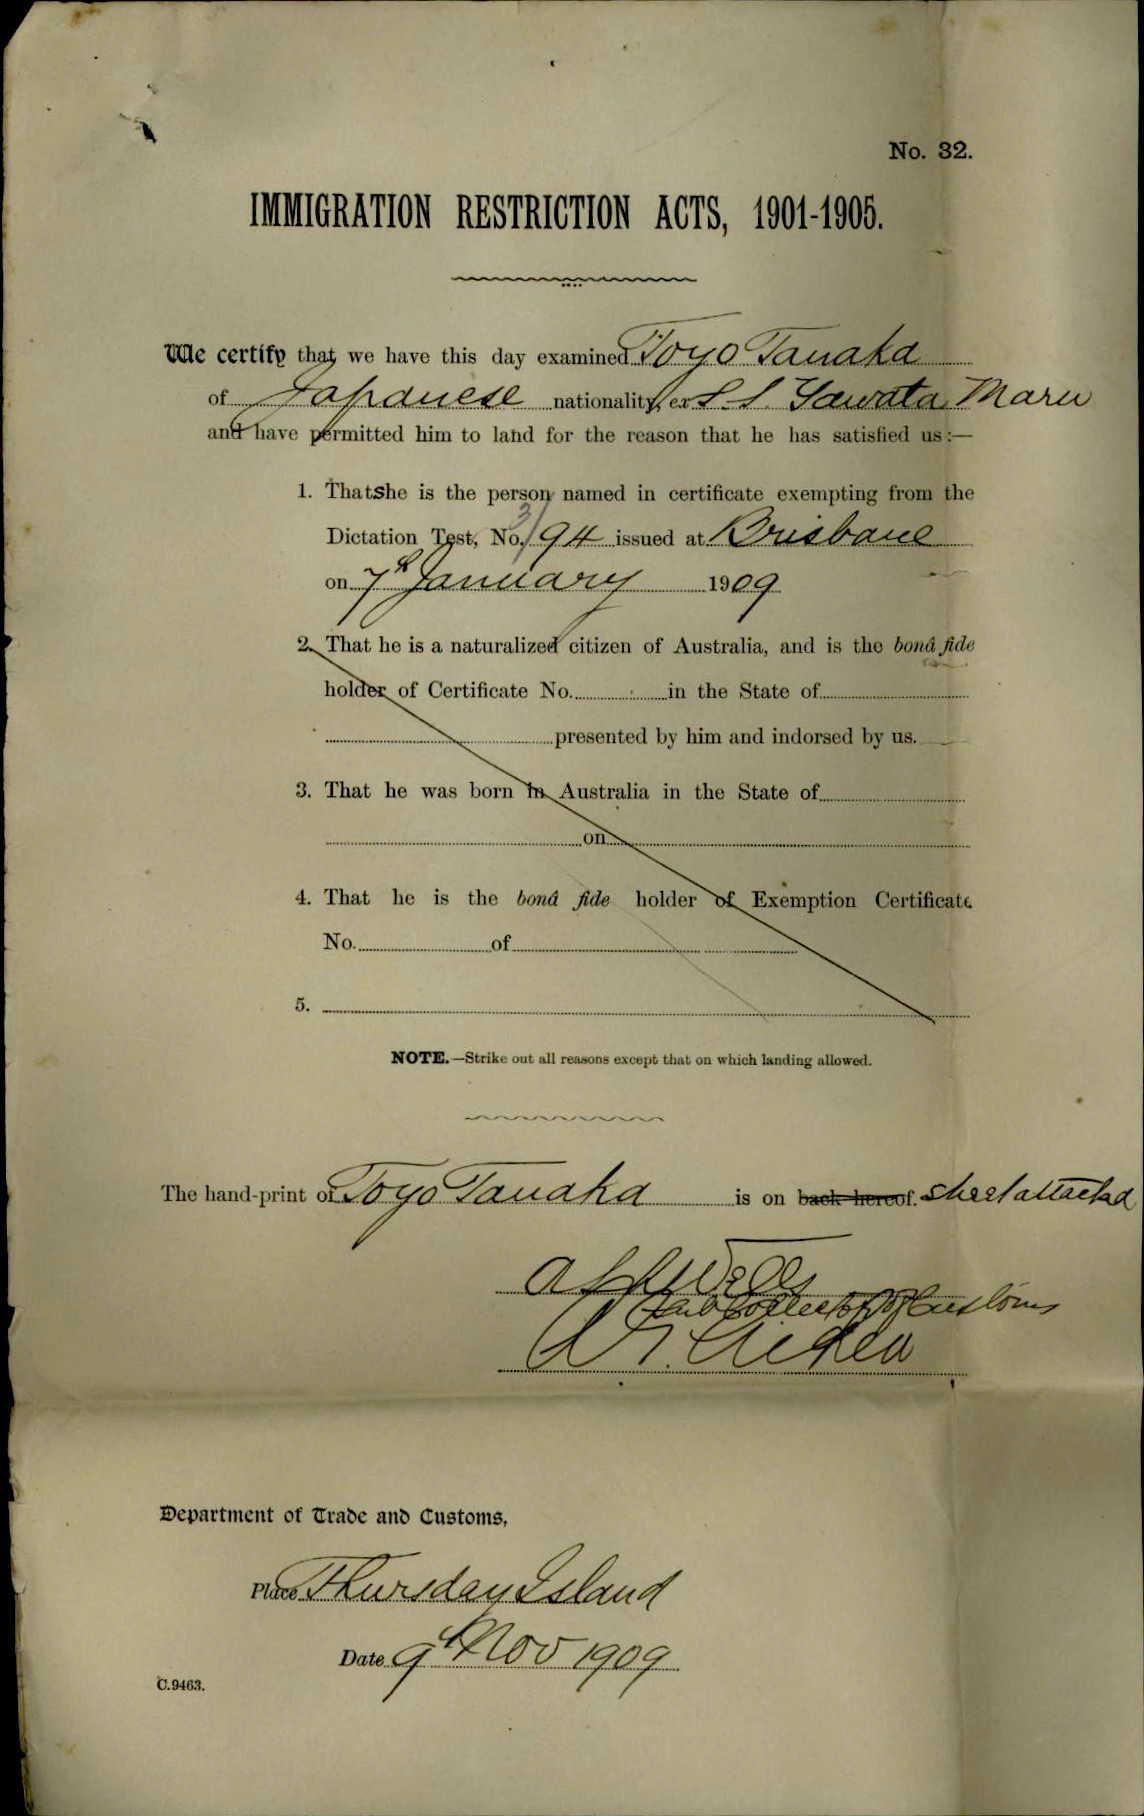 No. 32.
IMMIGRATION RESTRICTION ACTS, 1901-1905.
We certify that we have this day examined Toyo Tanaka
of Japanese nationality, ex S.S. Yawata Maru
and have permitted him to land for the reason that he has satisfied us:—
1. That she is the person named in certificate exempting from the
Dictation Test, No. 3/94 issued at Brisbane
on 7th January 1909
2. That he is a naturalized citizen of Australia, and is the bonâ fide
holder of Certificate No. in the State of
presented by him and indorsed by us.
3. That he was born in Australia in the State of
on
4. That he is the bonâ fide holder of Exemption Certificate
No. of
5.
NOTE.—Strike out all reasons except that on which landing allowed.
The hand-print of Toyo Tanaka is on back hereof. sheet attached
Sub Collector of Customs
Department of Trade and Customs,
Place Thursday Island
Date 9th Nov 1909
C.9463.